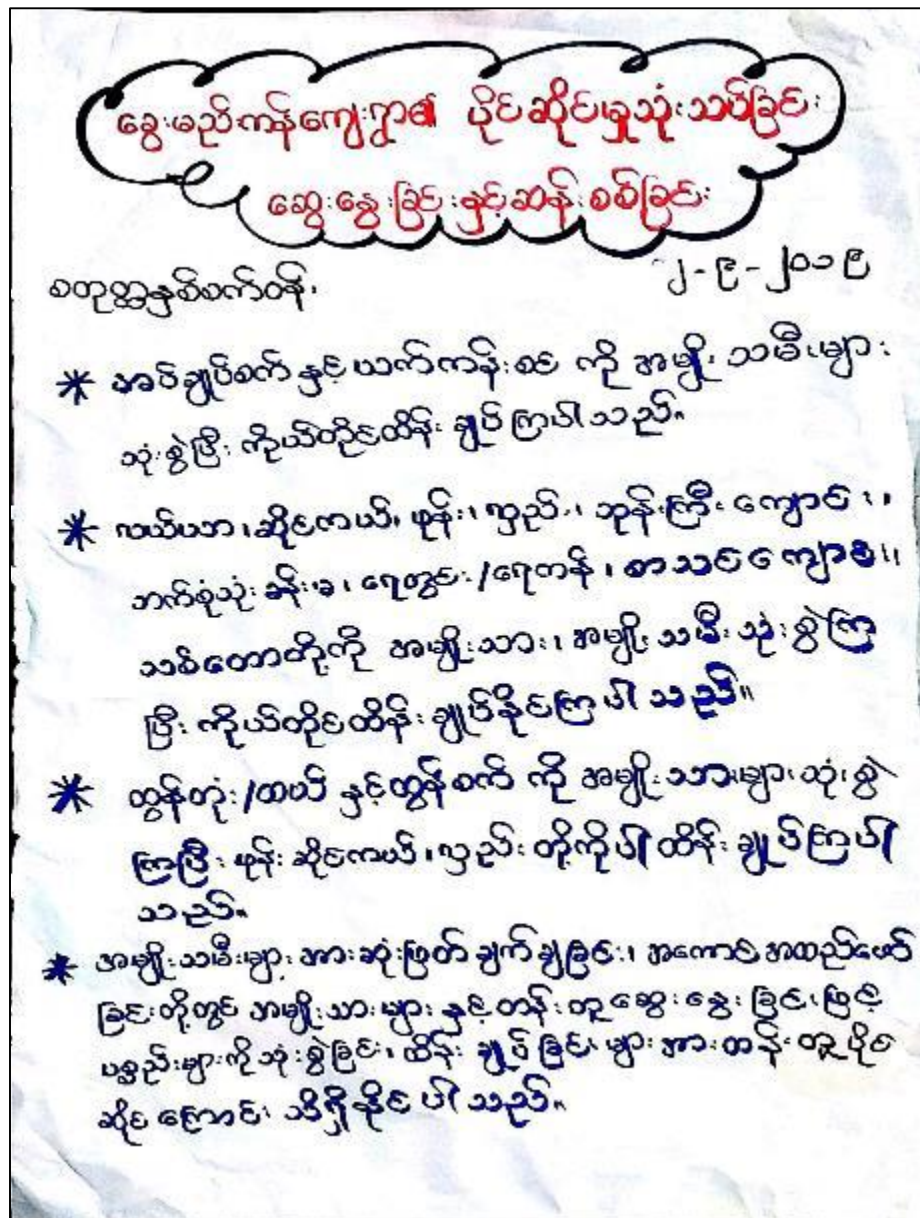 ခွေးမည်ကန်ကျေးရွာ၏ ပိုင်ဆိုင်မှုသုံးသပ်ခြင်း
ဆွေးနွေးခြင်းနှင့်ဆန်းစစ်ခြင်း
၂-၉-၂၀၁၉
စတုတ္ထနှစ်စက်ဝန်း
* အပ်ချုပ်စက် နှင့် ယက်ကန်းစင် ကို အမျိုးသမီးများ
သုံးစွဲပြီး ကိုယ်တိုင်ထိန်းချုပ်ကြပါသည်။
* လယ်ယာ၊ ဆိုင်ကယ်၊ ဖုန်း၊ လှည်း၊ ဘုန်းကြီးကျောင်း၊
ဘက်စုံသုံးခန်းမ၊ ရေတွင်း/ရေကန်၊ စာသင်ကျောင်း၊
သစ်တောတို့ကို အမျိုးသား၊ အမျိုးသမီး သုံးစွဲကြ
ပြီး ကိုယ်တိုင်ထိန်းချုပ်နိုင်ကြပါသည်။
* ထွန်တုံး/ထယ် နှင့်ထွန်စက် ကို အမျိုးသားများသုံးစွဲ
ကြပြီး ဖုန်း ဆိုင်ကယ်၊ လှည်း တို့ကိုပါ ထိန်းချုပ်ကြပါ
သည်။
* အမျိုးသမီးများ အားဆုံးဖြတ်ချက်ချခြင်း၊ အကောင်အထည်ဖော်
ခြင်းတို့တွင် အမျိုးသားများ နှင့်တန်းတူဆွေးနွေးခြင်းဖြင့်
ပစ္စည်းများကိုသုံးစွဲခြင်း၊ ထိန်းချုပ်ခြင်းများအားတန်းတူပိုင်
ဆိုင်ကြောင်း သိရှိနိုင်ပါသည်။